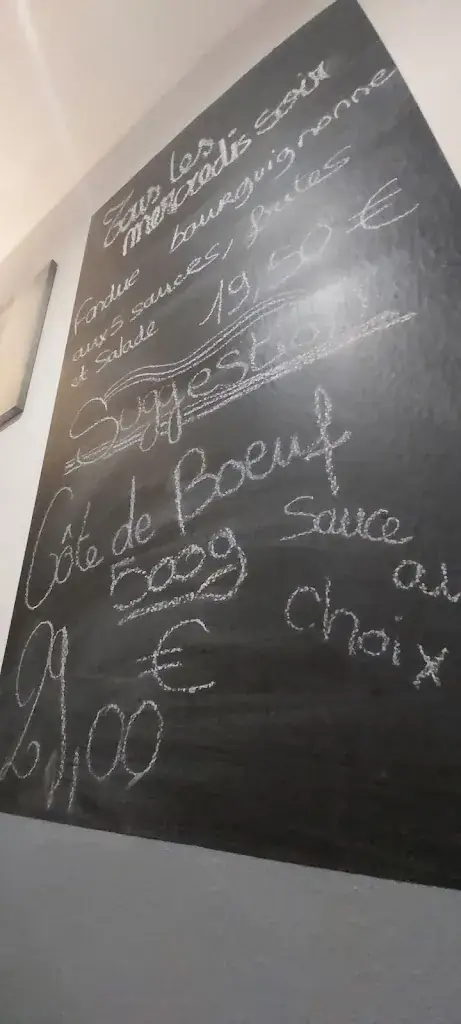 Tous les
mercredis soir
Fondue bourguignonne
aux 5 sauces, frites
et Salade 19,50 €
Suggestion
Côte de Boeuf
500g
Sauce
au
choix
29,00 €